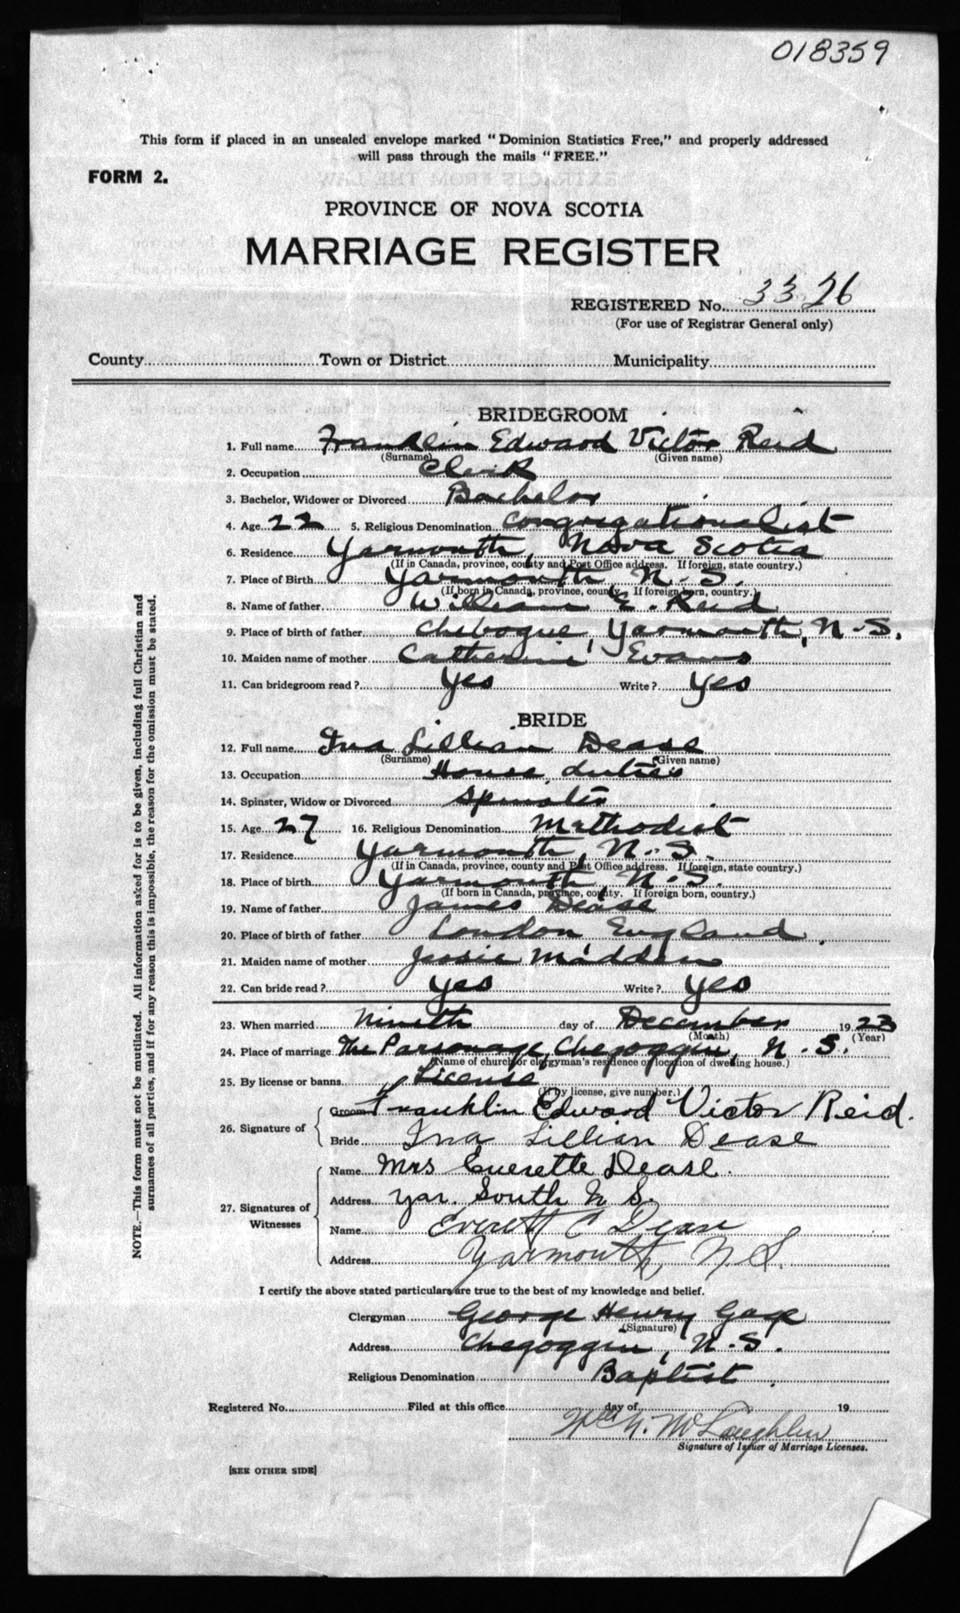 018359
This form if placed in an unsealed envelope marked "Dominion Statistics Free," and properly addressed
will pass through the mails "FREE."
FORM 2.
PROVINCE OF NOVA SCOTIA
MARRIAGE REGISTER
REGISTERED No. 3326
(For use of Registrar General only)
County Town or District Municipality
BRIDEGROOM
1. Full name Franklin Edward Victor Reid
(Surname) (Given name)
2. Occupation Clerk
3. Bachelor, Widower or Divorced Bachelor
4. Age 22 5. Religious Denomination Congregationalist
6. Residence Yarmouth, Nova Scotia
(If in Canada, province, county and Post Office address. If foreign, state country.)
7. Place of Birth Yarmouth, N.S.
(If born in Canada, province, county. If foreign born, country.)
8. Name of father William E. Reid
9. Place of birth of father Chebogue, Yarmouth, N.S.
10. Maiden name of mother Catherine Evans
11. Can bridegroom read? Yes Write? Yes
BRIDE
12. Full name Ina Lillian Dease
(Surname) (Given name)
13. Occupation House duties
14. Spinster, Widow or Divorced Spinster
15. Age 27 16. Religious Denomination Methodist
17. Residence Yarmouth, N.S.
(If in Canada, province, county and Post Office address. If foreign, state country.)
18. Place of birth Yarmouth, N.S.
(If born in Canada, province, county. If foreign born, country.)
19. Name of father James Dease
20. Place of birth of father London England
21. Maiden name of mother Jessie Madden
22. Can bride read? Yes Write? Yes
23. When married Nineth day of December 1923
(Month) (Year)
24. Place of marriage The Parsonage, Chegoggin, N.S.
(Name of church or clergyman's residence or location of dwelling house.)
25. By license or banns License
(If by license, give number.)
26. Signature of Groom Franklin Edward Victor Reid.
Bride Ina Lillian Dease
27. Signatures of Witnesses Name Mrs Everette Dease.
Address Yar. South N.S.
Name Everett C Dease
Address Yarmouth, N.S.
I certify the above stated particulars are true to the best of my knowledge and belief.
Clergyman George Henry Gage
(Signature)
Address Chegoggin, N.S.
Religious Denomination Baptist.
Registered No. Filed at this office day of 19
N. McLaughlin
Signature of Issuer of Marriage Licenses.
[SEE OTHER SIDE]
NOTE.—This form must not be mutilated. All information asked for is to be given, including full Christian and
surnames of all parties, and if for any reason this is impossible, the reason for the omission must be stated.